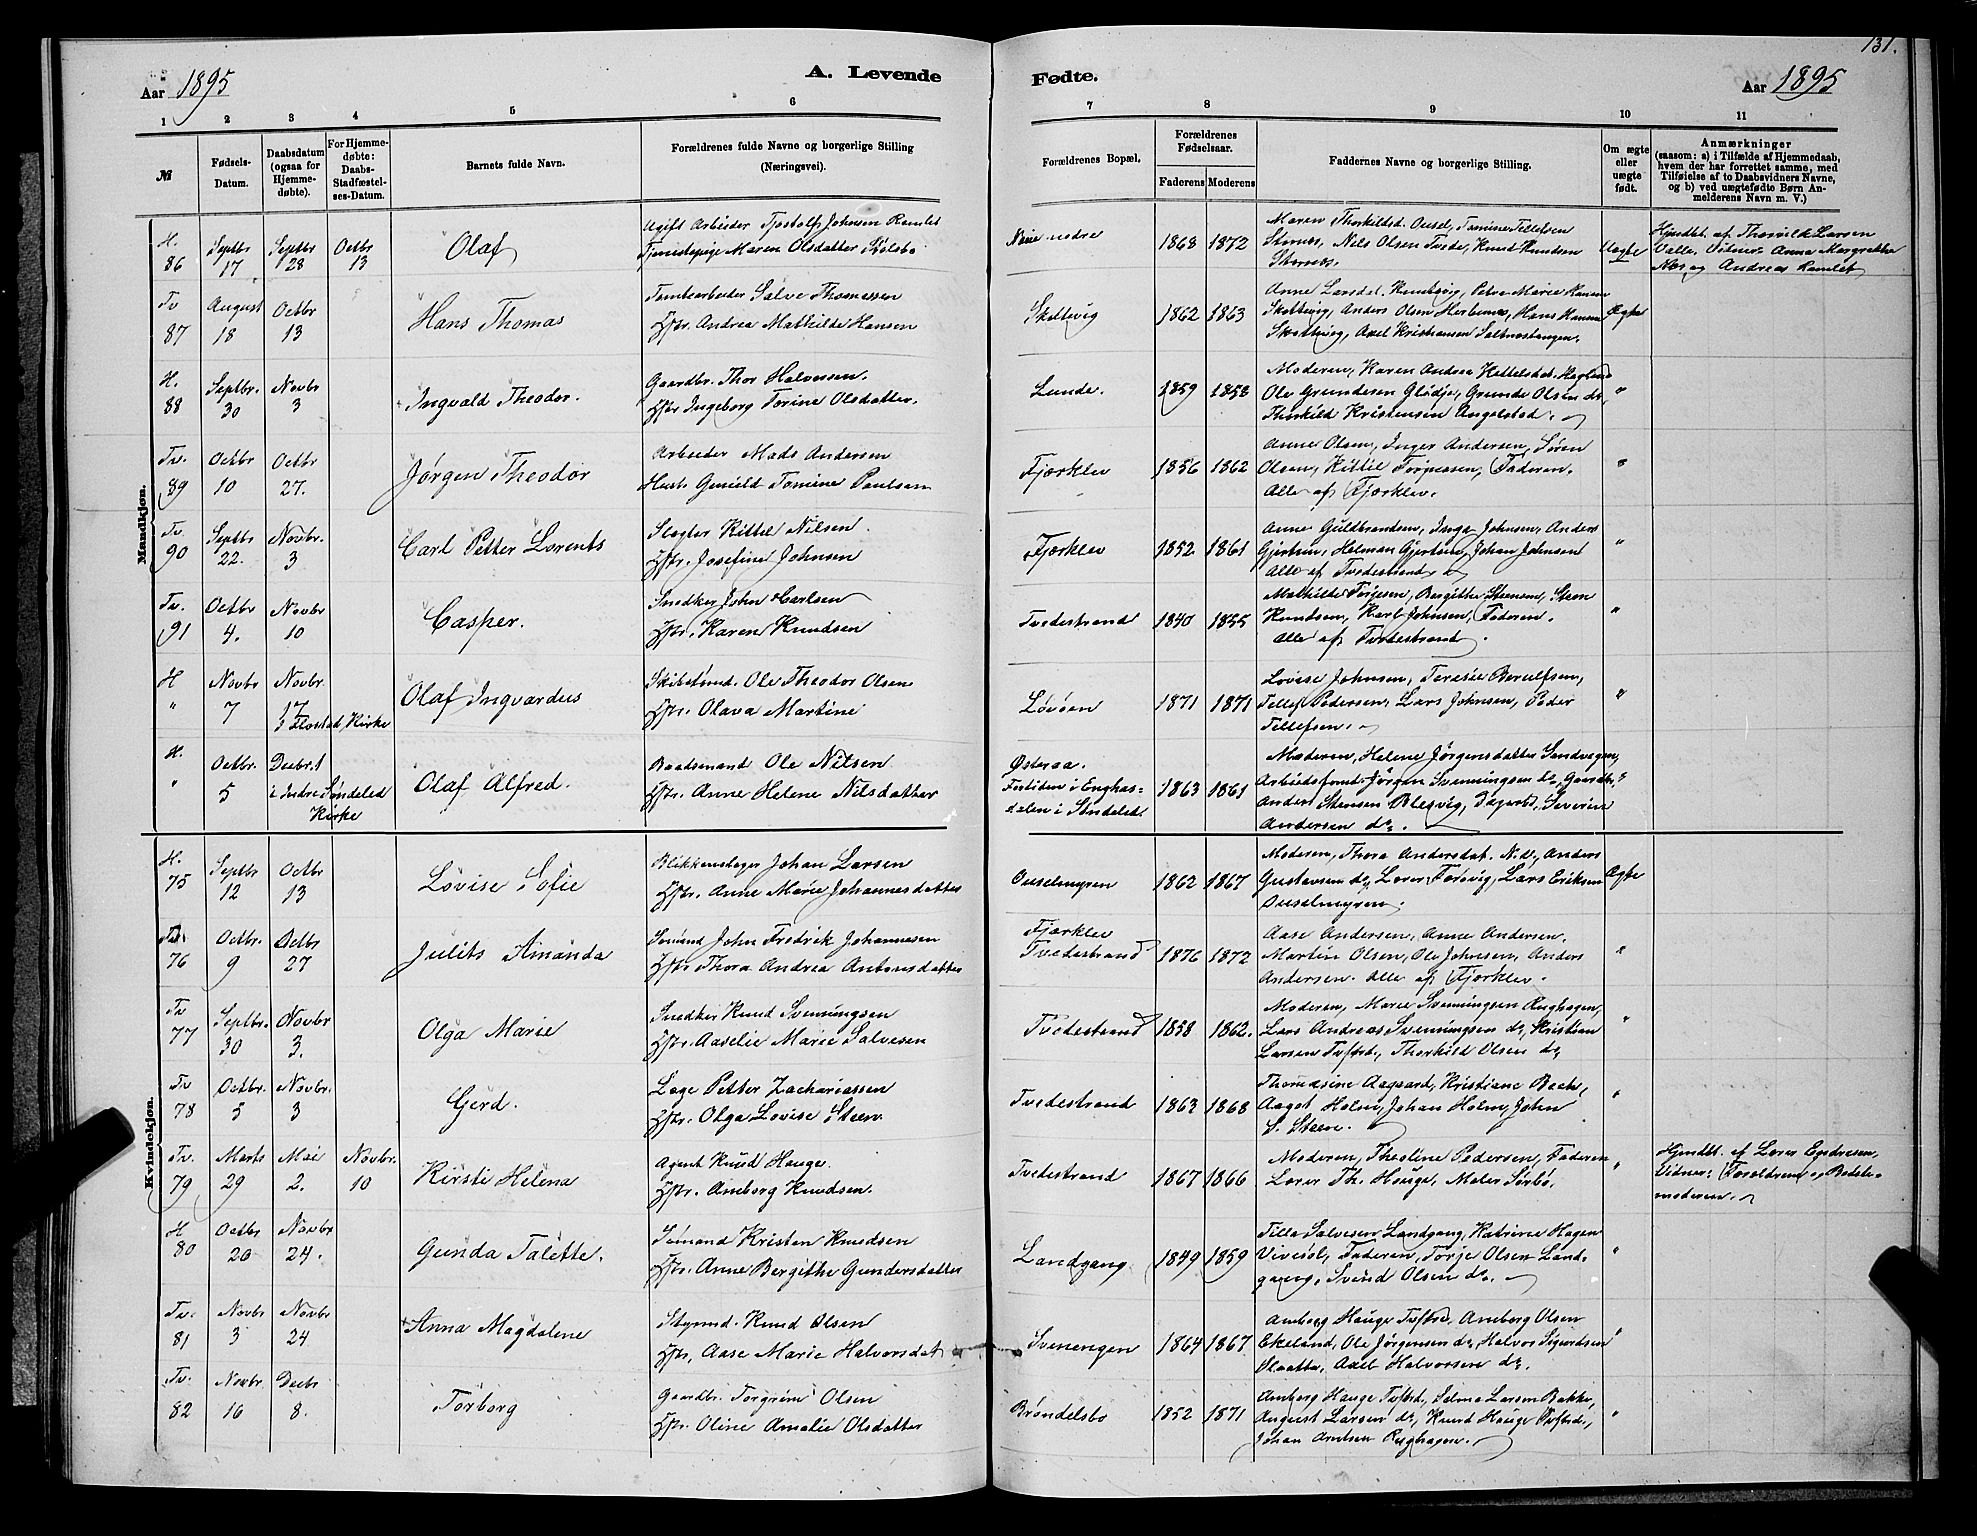 131.
Aar 1895
A. Levende Fødte.
Aar 1895
1 2 3 4 5 6 7 8 9 10 11
№
Fødsels-Datum.
Daabsdatum (ogsaa for Hjemmedøbte).
For Hjemmedøbte: Daabs-Stadfæstelses-Datum.
Barnets fulde Navn.
Forældrenes fulde Navne og borgerlige Stilling (Næringsvei).
Forældrenes Bopæl.
Forældrenes Fødselsaar.
Faderens Moderens
Faddernes Navne og borgerlige Stilling.
Om ægte eller uægte født.
Anmærkninger (saasom: a) i Tilfælde af Hjemmedaab, hvem der har forrettet samme, med Tilføielse af to Daabsvidners Navne, og b) ved uægtefødte Børn Anmelderens Navn m. V.)
Mandkjøn.
H. 86 Septbr 17 Septbr 28 Octbr 13 Olaf
Ugift Arbeider Tjostolf Johnsen Ramlet
Tjenestepige Maren Olsdatter
nedre 1868 1872
Maren Thorkildsd. Ousel, Tomine Tellefsen
Nils Olsen Tvede, Knud Knudsen
Uægte
Hjmdbt. af Thorvild Larsen
Valle. Vidner Anna Margrethe
Næs og Andreas Ramlet
Tv 87 August 18 Octbr 13 Hans Thomas
Tomtearbeider Salve Thomassen
Hstr. Andrea Mathilde Hansen
Skottvig 1862 1863
Petra Marie Hansen
Skottvig, Anders Olsen Hans Hansen
Skottvig, Axel Kristiansen
Ægte
H. 88 Septbr. 30 Novbr 3 Ingvald Theodor.
Gaardbr. Thor Halvorsen.
Hstr Ingeborg Torine Olsdatter.
Lunde. 1859 1858
Moderen, Karen Andrea Kittelsdat. Hagland
Ole Grundesen Glødje, Grunde Olsen do,
Thorkild Kristensen Angelstad.
"
Tv. 89 Octbr 10 Octbr 27. Jörgen Theodor
Arbeider Mads Andersen
Hust. Gunild Tomine Paulsen
Fjærklev 1856 1862
Anne Olsen, Inger Andersen, Sören
Olsen, Kittil Torjussen, Faderen.
Alle af Fjærklev.
"
Tv. 90 Septbr 22. Novbr. 3 Carl Petter Lorents
Slagter Kittil Nilsen.
Hstr. Josefine Johnsen
Fjærklev 1852 1861
Anne Guldbrandsen, Inga Johnsen, Anders
Gjertsen, Helman Gjertsen, Johan Johnsen
Alle af Tvedestrand
"
Tv. 91 Octbr 4. Novbr 10 Casper.
Snedker John Carlsen
Hstr. Karen Knudsen
Tvedestrand 1840 1855
Mathilde Törjesen, Bergitte Stensen, Steen
Knudsen, Karl Johnsen, Faderen.
Alle af Tvedestrand.
"
H " Novbr 7 Novbr. 17 i Flosta Kirke Olaf Ingvardus
Skibstömd. Ole Theodor Olsen
Hstr. Olava Martine
1871 1871
Lovise Johnsen, Teresie Berulfsen,
Tellef Pedersen, Lars Johnsen, Peder
Tellefsen.
"
H. " Octbr. 5 Decbr. 1 i Indre Söndeled Kirke Olaf Alfred.
Baadsmand Ole Nilsen
Hstr. Anne Helene Nilsdatter
Østeraa.
Fortiden i Enghasdalen i Söndeled. 1863 1861
Moderen, Helene Jörgensdatter Sandvigen,
Arbeidsfmd. Jörgen Svenningsen do, Gaardbr.
Anders Stensen Blegvig, Ingeborg Severine
Andersen do.
Kvindekjøn.
H. 75 Septbr 12 Octbr 13 Lovise Sofie
Blikkenslager Johan Larsen
Hstr. Anne Marie Johannesdatter
Ouselmyren 1862 1867
Moderen, Thora Andersdat. N.v., Anders
Gustavsen do, Lovise Torsvig, Lars Eriksen
Ouselmyren.
Ægte
Tv. 76 Octbr. 9 Octbr 27 Julits Amanda
Sömand John Fredrik Johannesen
Hstr Thora Andrea Antonsdatter
Fjærklev
Tvedestrand 1876 1872
Aase Andersen, Anne Andersen.
Martin Olsen, Ole Johnsen, Anders
Andersen. Alle af Fjærklev.
"
Tv 77 Septbr. 30 Novbr 3. Olga Marie
Snedker Knud Svenningsen
Hstr. Aaselie Marie Salvesen
Tvedestrand 1858 1862.
Moderen, Marie Svenningsen Rughagen,
Lars Andreas Svenningsen do, Kristian
Larsen Tvstrd., Thorkild Olsen do,
"
Tv 78 Octbr. 5 Novbr. 3 Gerd.
Læge Petter Zachariassen
Hstr. Olga Lovise Steen
Tvedestrand 1863 1868
Thomasine Aagaard, Kristiane Bech,
Aagot Holm, Johan Holm, John
S. Steen.
"
Tv. 79 Marts 29 Mai 2. Novbr. 10 Kirsti Helena
Agent Knud Hauge.
Hstr. Amborg Knudsen.
Tvedestrand 1867 1866
Moderen, Theoline Pedersen, Faderen
Lover Th. Hauge, Maler Sörbö.
"
Hjmdbt. af Lover Endresen,
Vidner: Forældrene og Bedstemoderen.
H 80 Octbr 20 Novbr 24. Gunda Talette.
Sömand Kristen Knudsen
Hstr. Anne Bergithe Gundersdatter
Landgang 1849 1859
Tilla Salvesen Landgang, Katrine Hagen
Vivesöl, Faderen, Torje Olsen Landgang, Svend Olsen do.
"
Tv. 81 Novbr 3 Novbr 24 Anna Magdalene
Styrmd. Knud Olsen
Hstr, Aase Marie Halvorsdat
Svenengen 1864 1867
Amborg Hauge Tvstrd, Amborg Olsen
Ekeland, Ole Jörgensen do, Halvor Sigurdsen
Slaatta, Axel Halvorsen do.
"
Tv. 82 Novbr. 16 Decbr 8. Torborg
Gaardbr. Torgrim Olsen
Hstr. Oline Amalie Olsdatter
Bröndelsbo 1852 1871
Amborg Hauge Tvstrd., Selma Larsen Bakke,
August Larsen do, Knud Hauge Tvstrd.,
Johan Arntsen Rughagen.
"